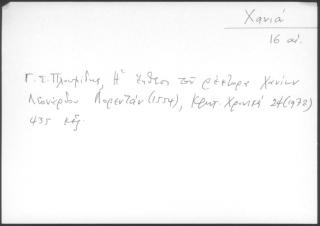 Χανιά
16 αι.
Γ. Σ. Πλουμίδης, Η ἔκθεση τοῦ ρέκτορα Χανίων
Λεονάρδου Λορεντάν (1554), Κρητ. Χρονικά 24 (1972)
435 κἑξ.